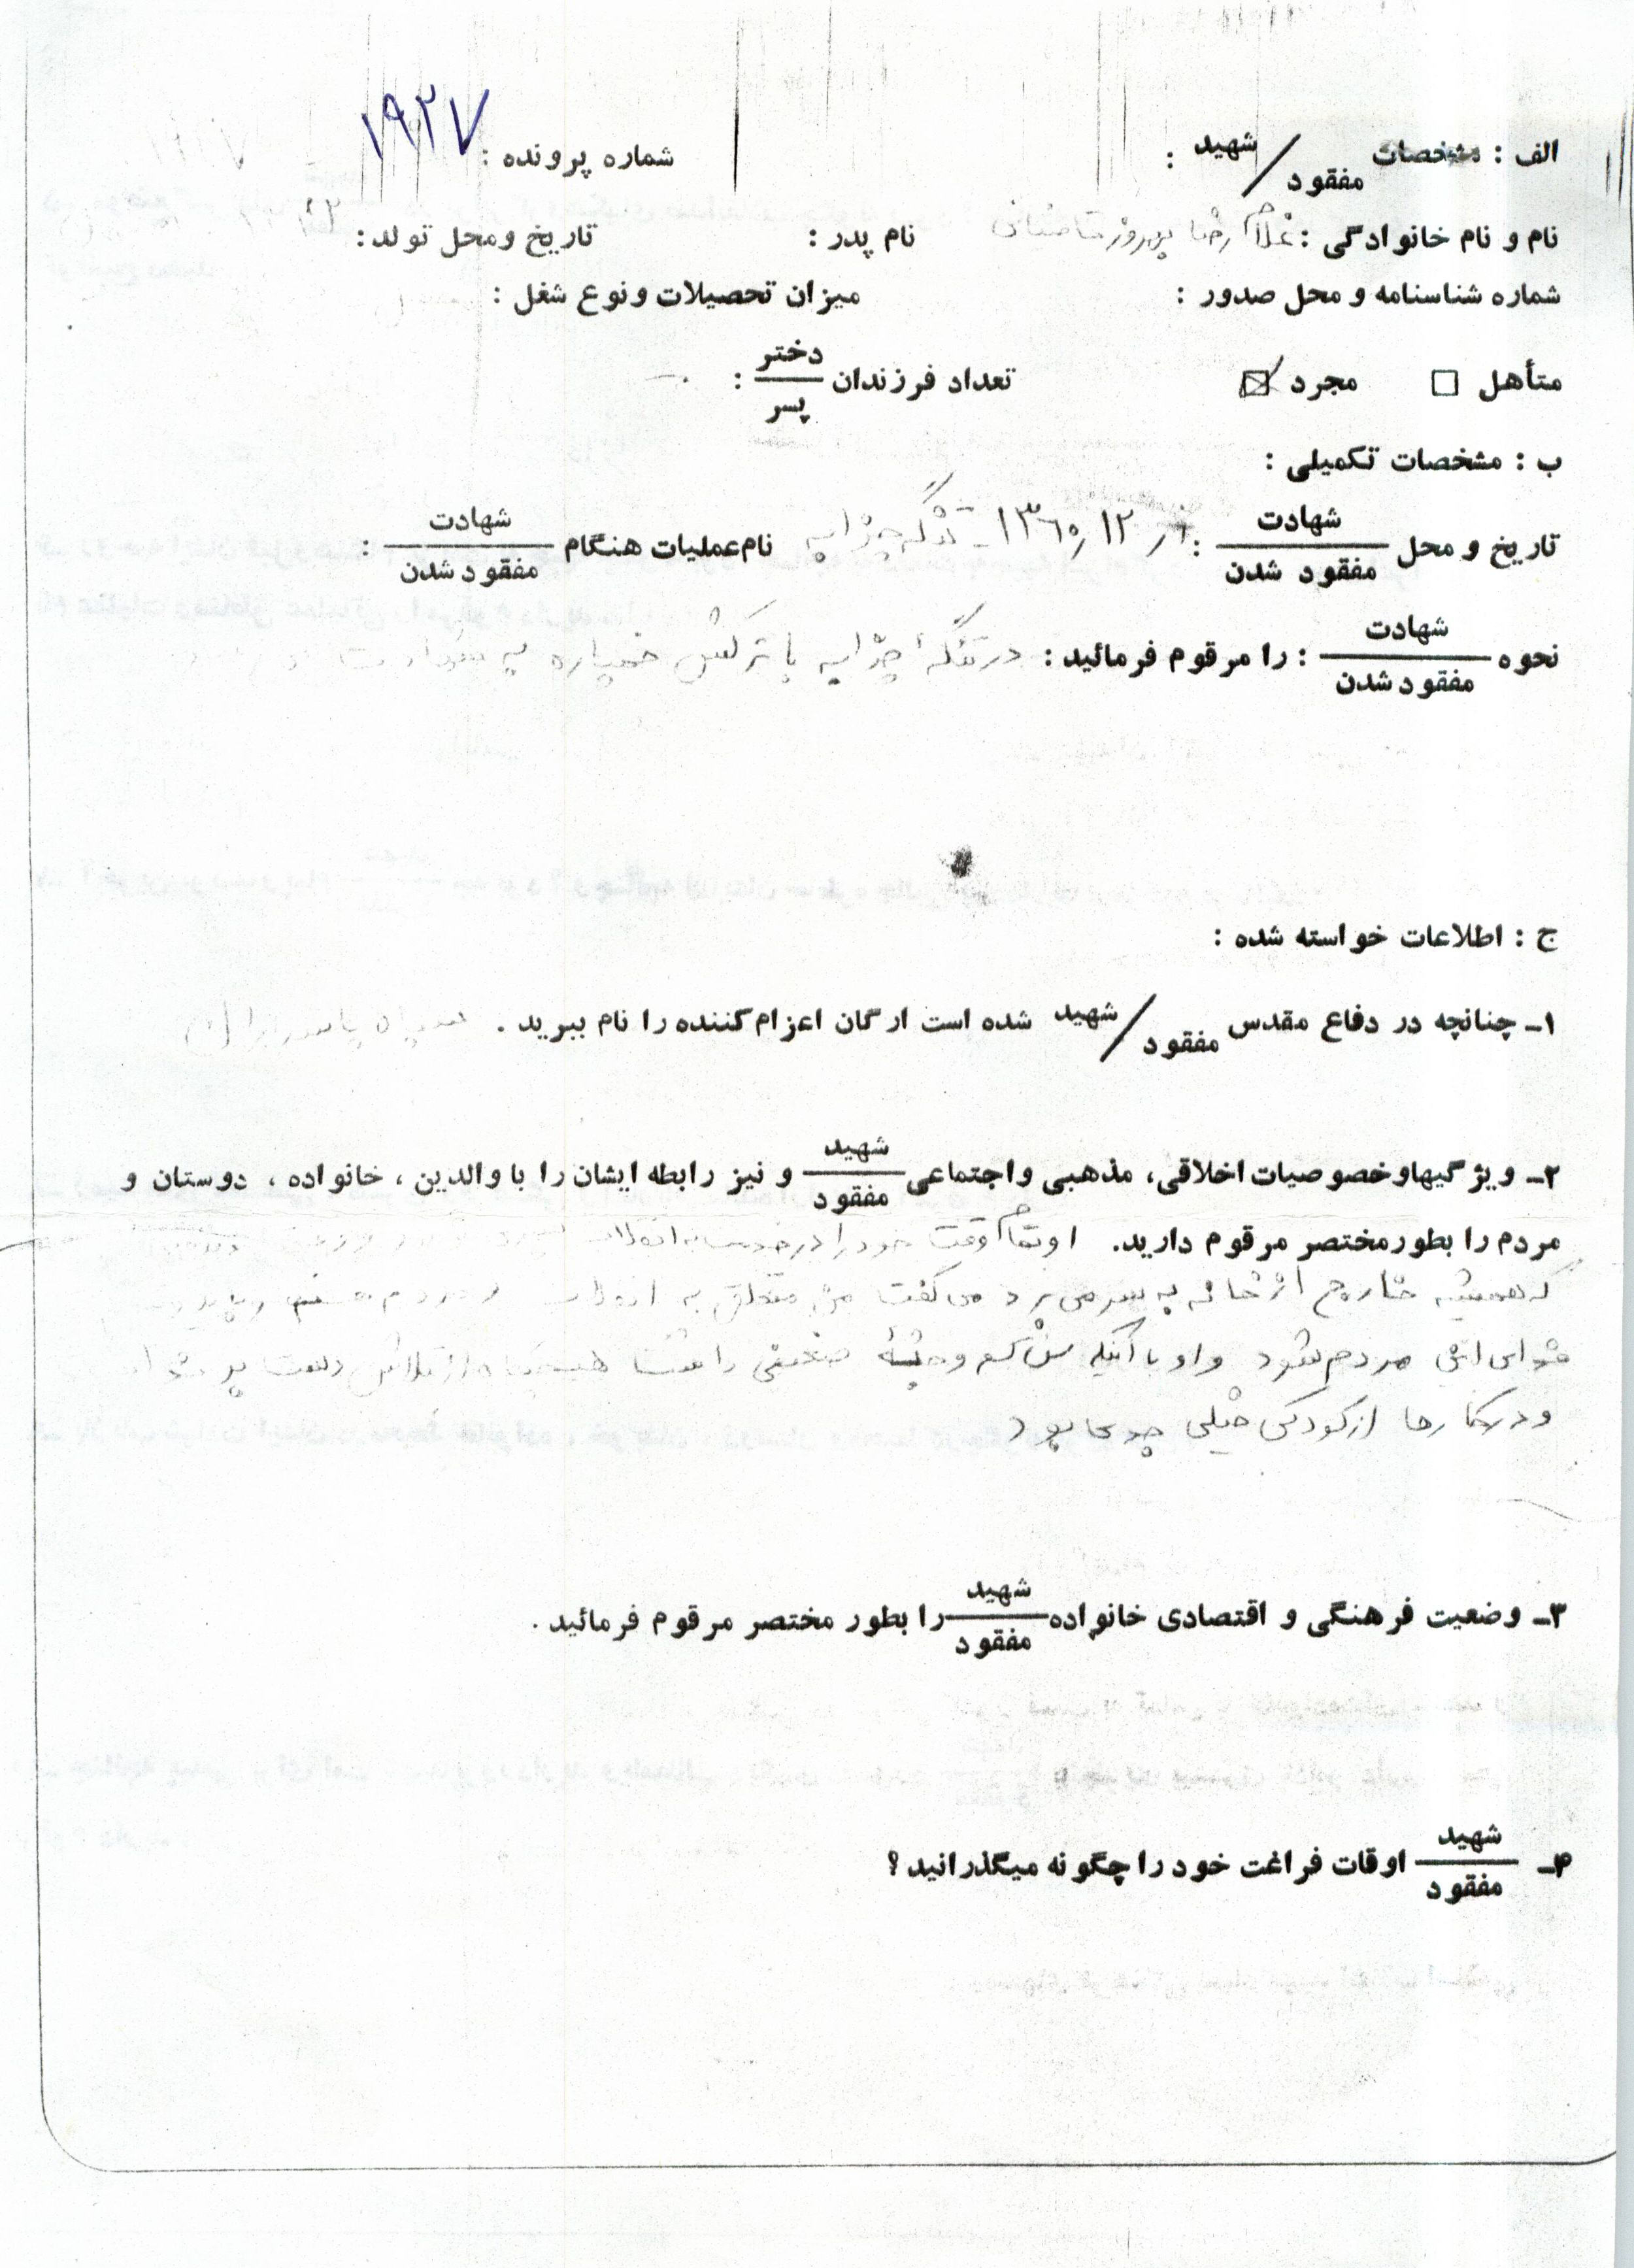 الف : مشخصات شهید/مفقود : شماره پرونده : ۱۹۲۷
نام و نام خانوادگی : غلامرضا بهروز نام پدر : تاریخ ومحل تولد :
شماره شناسنامه و محل صدور : میزان تحصیلات و نوع شغل :
متأهل □ مجرد ☒ تعداد فرزندان دختر/پسر :
ب : مشخصات تکمیلی :
تاریخ و محل شهادت/مفقود شدن : ۱۳۶۰٫۱۲ ـ تنگه چزابه نام عملیات هنگام شهادت/مفقود شدن :
نحوه شهادت/مفقود شدن : را مرقوم فرمائید : در تنگه چزابه با ترکش خمپاره به
ج : اطلاعات خواسته شده :
۱ـ چنانچه در دفاع مقدس شهید/مفقود شده است ارگان اعزام کننده را نام ببرید . سپاه پاسداران
۲ـ ویژگیهاوخصوصیات اخلاقی، مذهبی واجتماعی شهید/مفقود و نیز رابطه ایشان را با والدین ، خانواده ، دوستان و
مردم را بطورمختصر مرقوم دارید. او تمام وقت خود را در خدمت به انقلاب
که همیشه خارج از خانه به سر می برد می گفت من متعلق به انقلاب و مردم هستم
مردم شود و او با آنکه سن کم و جثه ضعیفی داشت هیچگاه از تلاش دست بر
و در کارها از کودکی خیلی جدی بود
۳ـ وضعیت فرهنگی و اقتصادی خانواده شهید/مفقود را بطور مختصر مرقوم فرمائید .
۴ـ شهید/مفقود اوقات فراغت خود را چگونه میگذرانید ؟